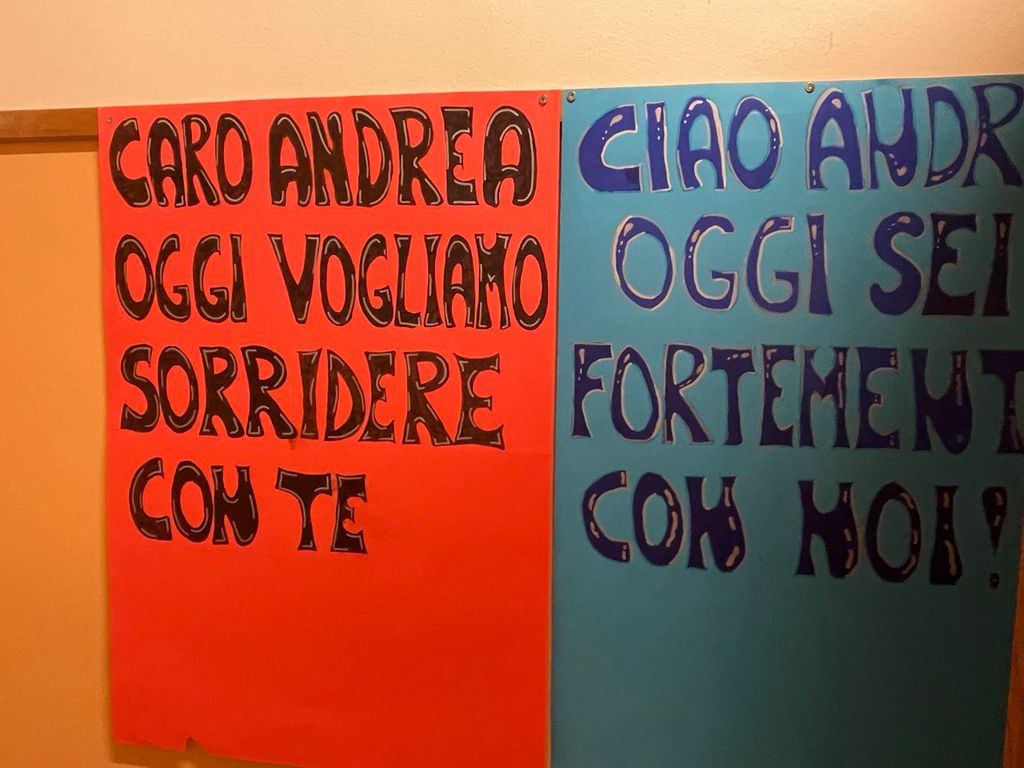 CARO ANDREA
OGGI VOGLIAMO
SORRIDERE
CON TE
CIAO ANDR
OGGI SEI
FORTEMENT
CON NOI!